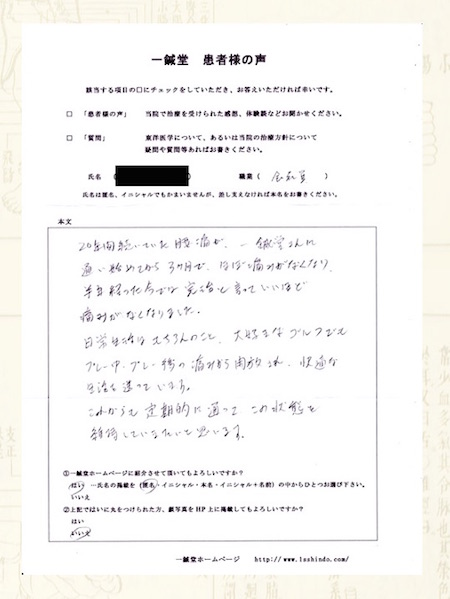 一鍼堂 患者様の声
該当する項目の□にチェックをしていただき、お答えいただければ幸いです。
□ 「患者様の声」 当院で治療を受けられた感想、体験談などお聞かせください。
□ 「質問」 東洋医学について、あるいは当院の治療方針について
疑問や質問等あればお書きください。
氏名 ( 職業 ( 会社員 )
氏名は匿名、イニシャルでもかまいませんが、差し支えなければ本名をお書きください。
本文
20年間続いていた腰痛が、一鍼堂さんに
通い始めてから3ヶ月で、ほぼ痛みがなくなり、
半年経った今では完治と言っていいほど
痛みがなくなりました。
日常生活はもちろんのこと、大好きなゴルフでも
プレー中・プレー後の痛みから開放され、快適な
生活を送っています。
これからも定期的に通って この状態を
維持していきたいと思います。
①一鍼堂ホームページに紹介させて頂いてもよろしいですか?
はい …氏名の掲載を (匿名・イニシャル・本名・イニシャル+名前) の中からひとつお選び下さい。
いいえ
②上記ではいに丸をつけられた方、顔写真をHP上に掲載してもよろしいですか?
はい
いいえ
一鍼堂ホームページ http://www.1sshindo.com/